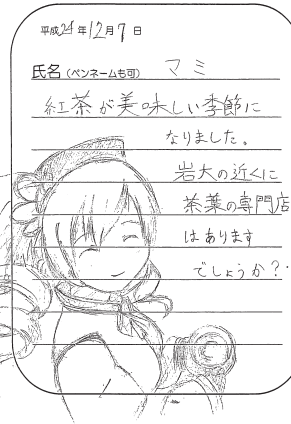 平成24年12月7日
氏名(ペンネームも可) マミ
紅茶が美味しい季節に
なりました。
岩大の近くに
茶葉の専門店
はあります
でしょうか?